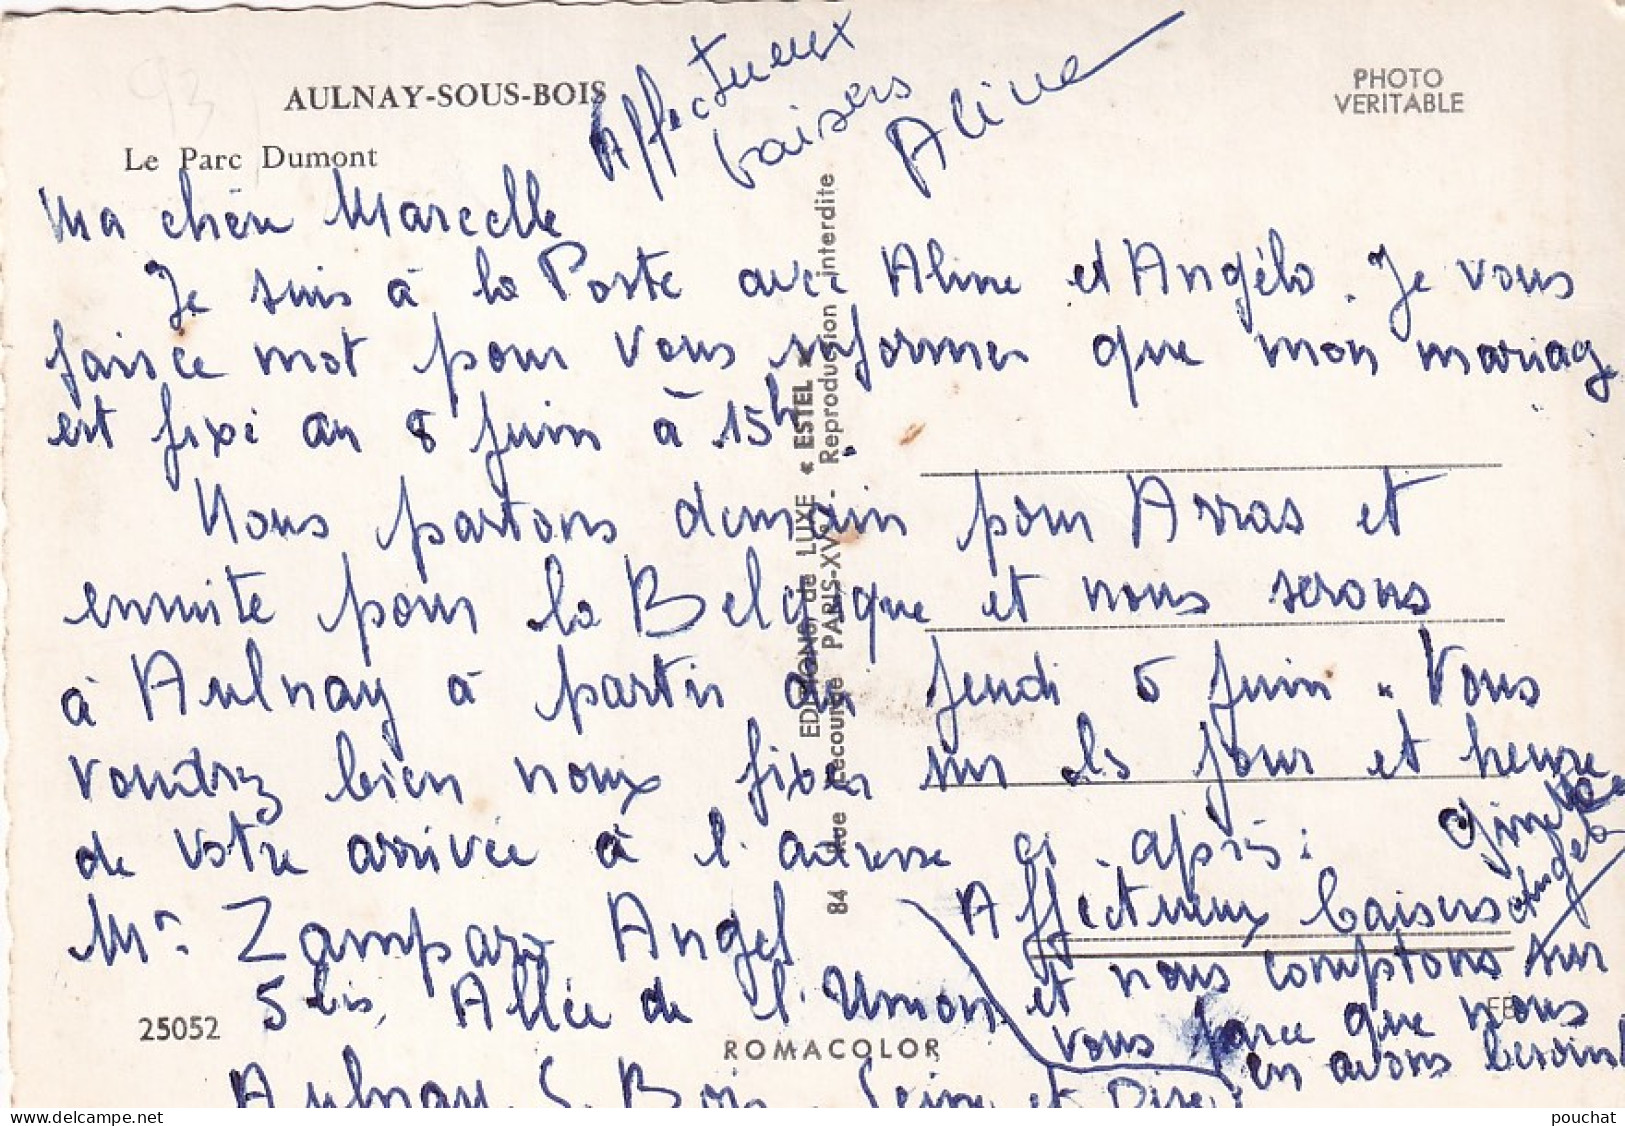 AULNAY-SOUS-BOIS
Le Parc Dumont
PHOTO
VERITABLE
Affectueux
baisers
Aline
Ma chère Marcelle
Je suis à la Poste avec Aline et Angélo. Je vous
fais ce mot pour vous informer que mon mariag
est fixé au 8 juin à 15h.
Nous partons demain pour Arras et
ensuite pour la Belgique et nous serons
à Aulnay à partir du jeudi 5 juin. Vous
voudrez bien nous fixer sur les jour et heure
de votre arrivée à l'adresse ci-après :
Mr Zamparo Angel
5 bis, Allée de l'Union
Aulnay. S. Bois. Seine et Oise
Affectueux baisers
Ginette
et Angélo
et nous comptons sur
vous parce que nous
en avons besoin!
EDITIONS de LUXE « ESTEL »
84 Rue Lecourbe PARIS-XVe - Reproduction interdite
25052
ROMACOLOR
pouchat